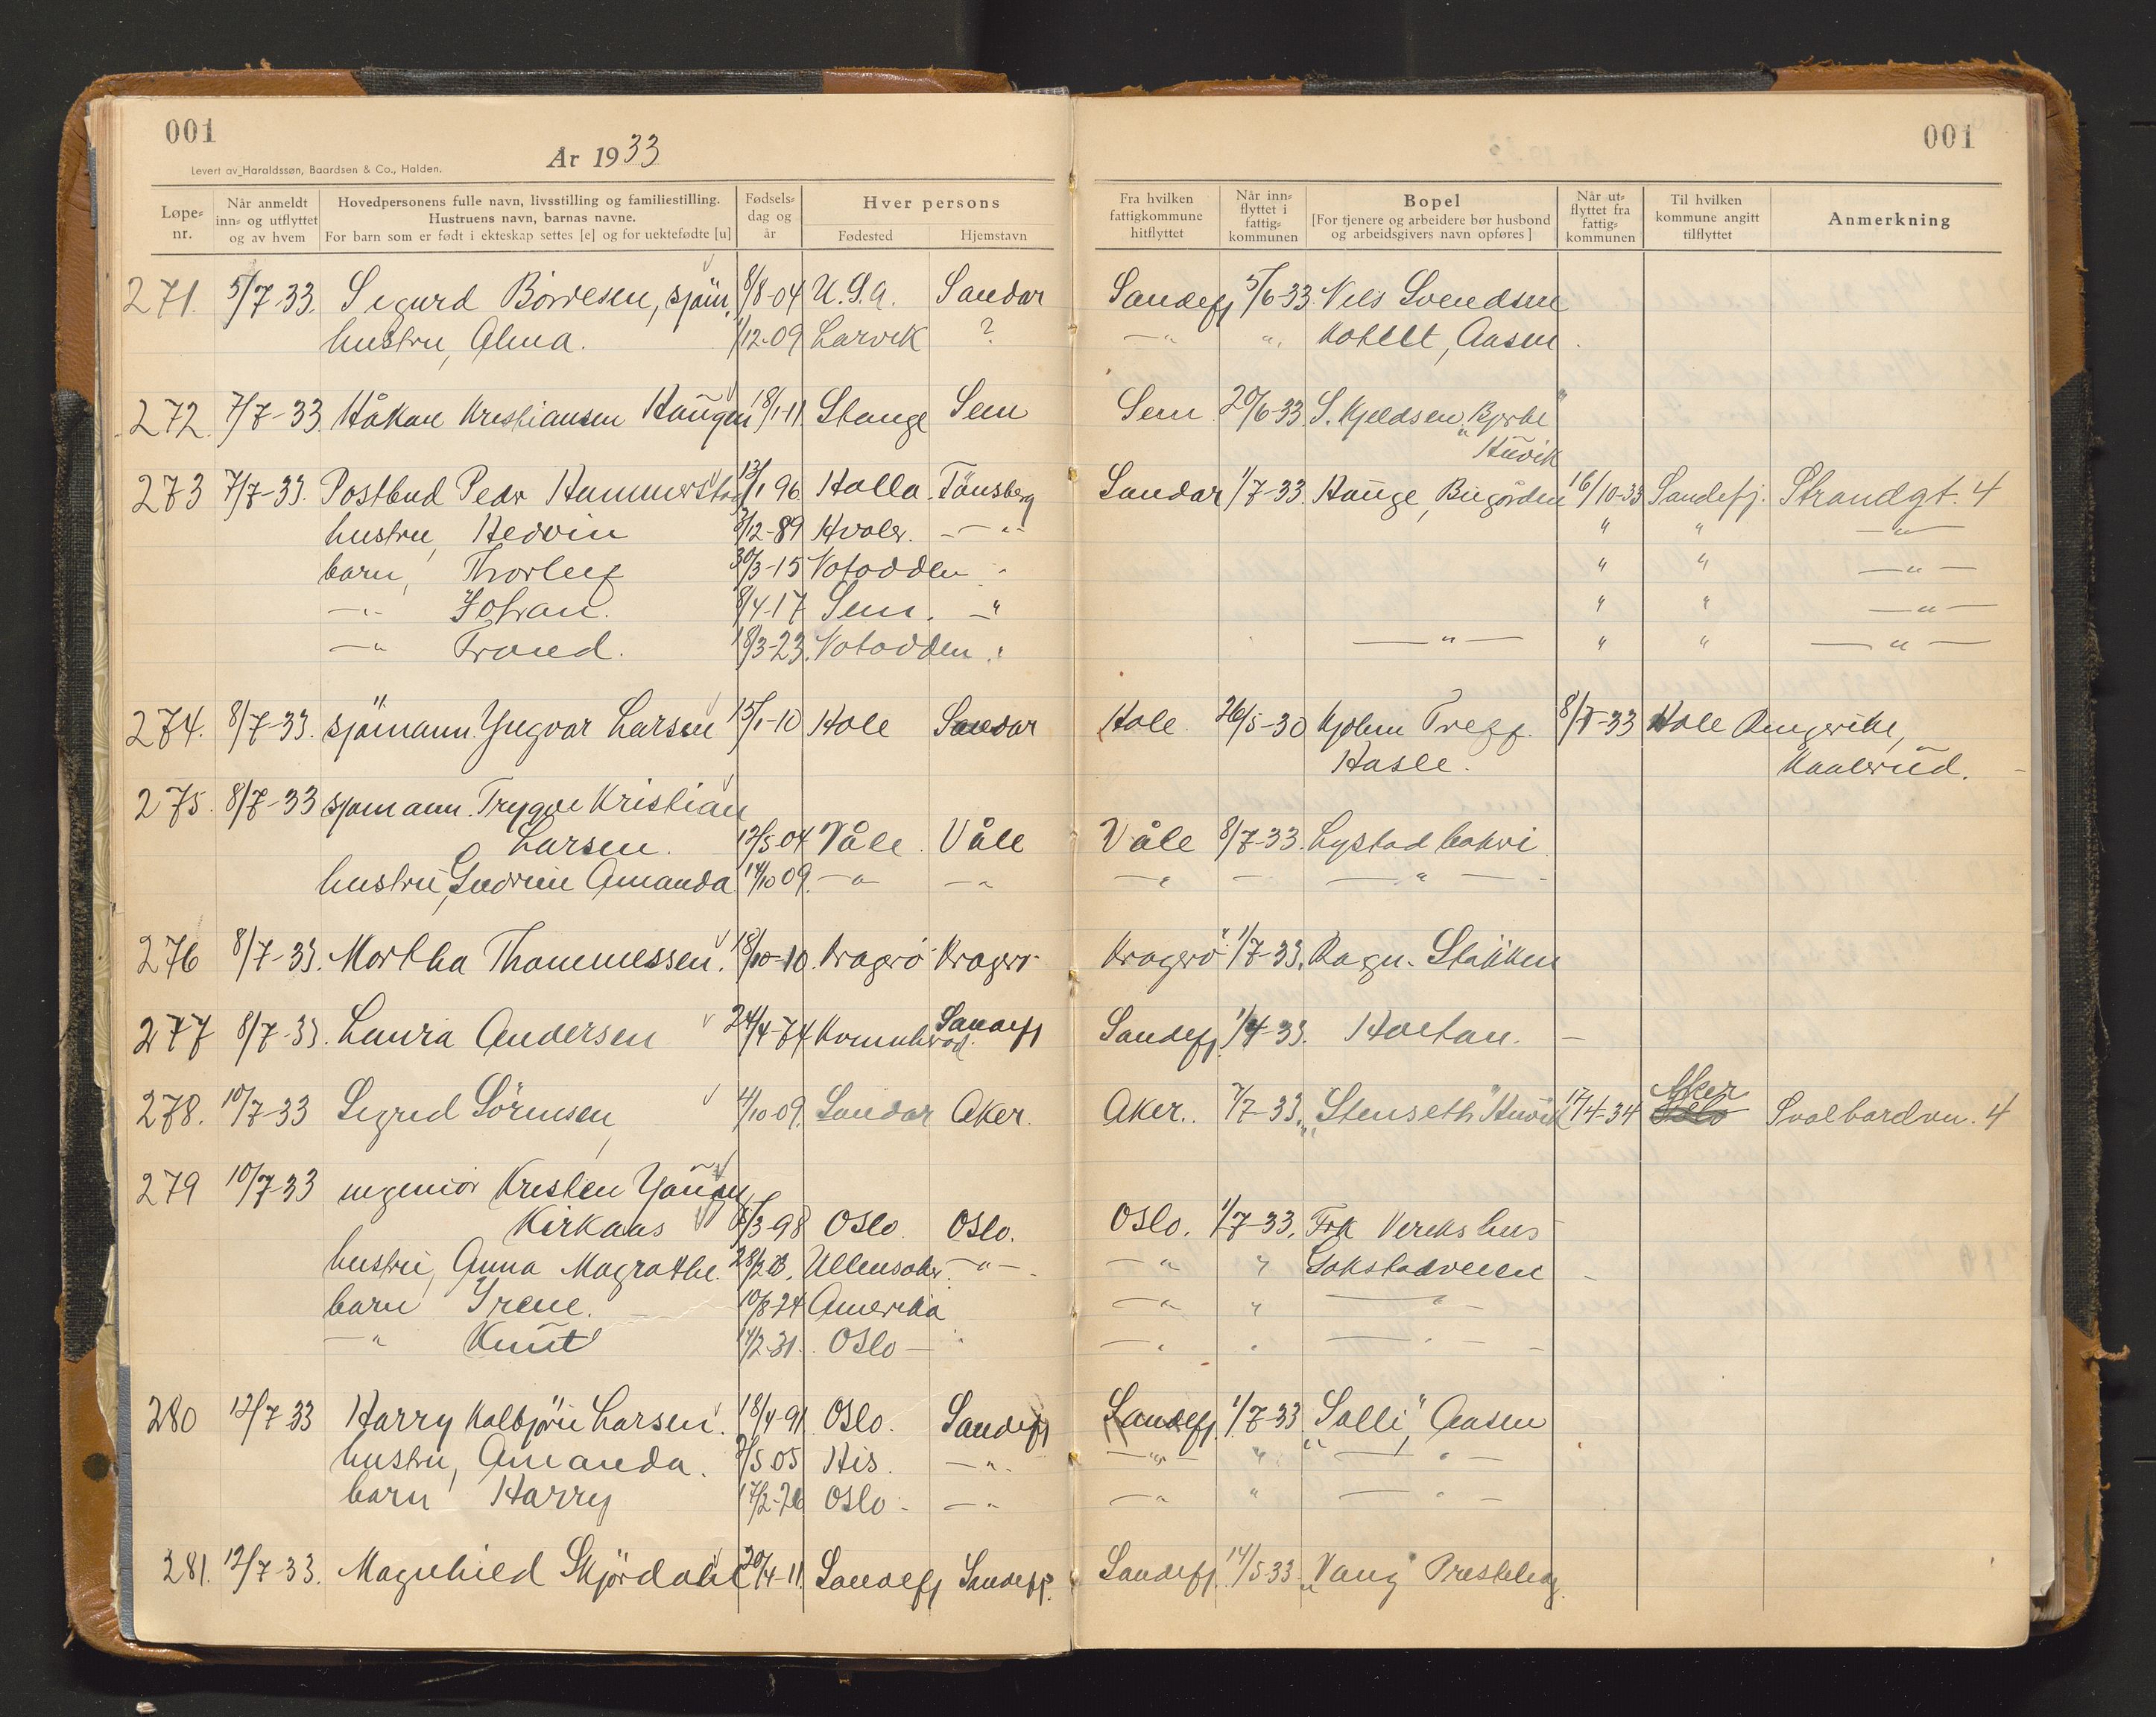 001
År 1933
Levert av Haraldssøn, Baardsen & Co., Halden.
Løpe-nr.
Når anmeldt inn- og utflyttet og av hvem
Hovedpersonens fulle navn, livsstilling og familiestilling.
Hustruens navn, barnas navne.
For barn som er født i ekteskap settes [e] og for uektefødte [u]
Fødsels-dag og år
Hver persons
Fødested
Hjemstavn
001
Fra hvilken fattigkommune hitflyttet
Når inn-flyttet i fattig-kommunen
Bopel
[For tjenere og arbeidere bør husbond og arbeidsgivers navn opføres]
Når ut-flyttet fra fattig-kommunen
Til hvilken kommune angitt tilflyttet
Anmerkning
271. 5/7-33. Sigurd Börresen, sjöm. 8/8-04 U.S.A. Sandar Sandefj 5/6-33 Nils Svendsen
hustru, Alma. 1/12-09 Larvik ? —"— ". Aasen
272. 7/7-33. Håkon Kristiansen Haugen 18/1-11. Stange Sem Sem 20/6-33. S. Kjeldsen,
Huvik
273 7/7-33. Postbud Peder Hammerstad 13/1 96 Holla. Tönsberg Sandar 1/7-33. Hauge, Bugården 16/10-33 Sandefj. Strandgt. 4
hustru, Hedvin /12-89 Hvaler. —"— " " —"—
barn, Thorleif 30/3-15 Notodden " " " —"—
—"— Johan. 8/4-17 Sem. —" " " —"—
—" Trond. 18/3-23. Notodden " —"— " " —"—
274. 8/7-33. sjömann. Yngvar Larsen 15/1-10 Hole Sandar Hole 26/5-30 8/7-33 Hole Ringerike,
Hasle. Kaalerud.
275. 8/7-33 sjömann. Trygve Kristian
Larsen. 12/5-04 Våle. Våle Våle 8/7-33. Lystad
hustru, Gudrun Amanda 14/10 09. —"— —" —" — —"—
276 8/7-33. Martha Thommessen. 18/10-10. Kragerö Kragerö Kragerö 1/7-33. Ragn. Stokken
277 8/7-33. Laura Andersen 24/4-74 Sandefj Sandefj. 1/4-33. Holtan. —
278. 10/7-33 Sigrid Sörensen 4/10-09. Sandar Aker. Aker. 7/7-33. "Stenseth" Huvik 17/4-34 Aker Svalbardvn. 4
279 10/7-33 ingeniör Kristen
Kirkaas /3-98 Oslo. Oslo. Oslo. 1/7-33. Frk hus
hustru, Anna Magrathe. 28/2 Ullensaker. —"— —" " Gokstadveien —
barn Irene. 10/8-24 Amerika —" " —"—
—" Knut 14/2-31. Oslo — " —" " —"—
280 12/7-33 Harry Kolbjörn Larsen. 18/4-91. Oslo. Sandefj Sandefj. 1/7-33 "Solli," Aasen
hustru, Amanda. /5 05 His. —"— —"— " —"—
barn Harry 17/2-26 Oslo. —" —" " —"—
281. 12/7-33. Magnhild Skjördahl 20/4-11. Sandefj Sandefj. Sandefj. 14/5-33 "Vang"